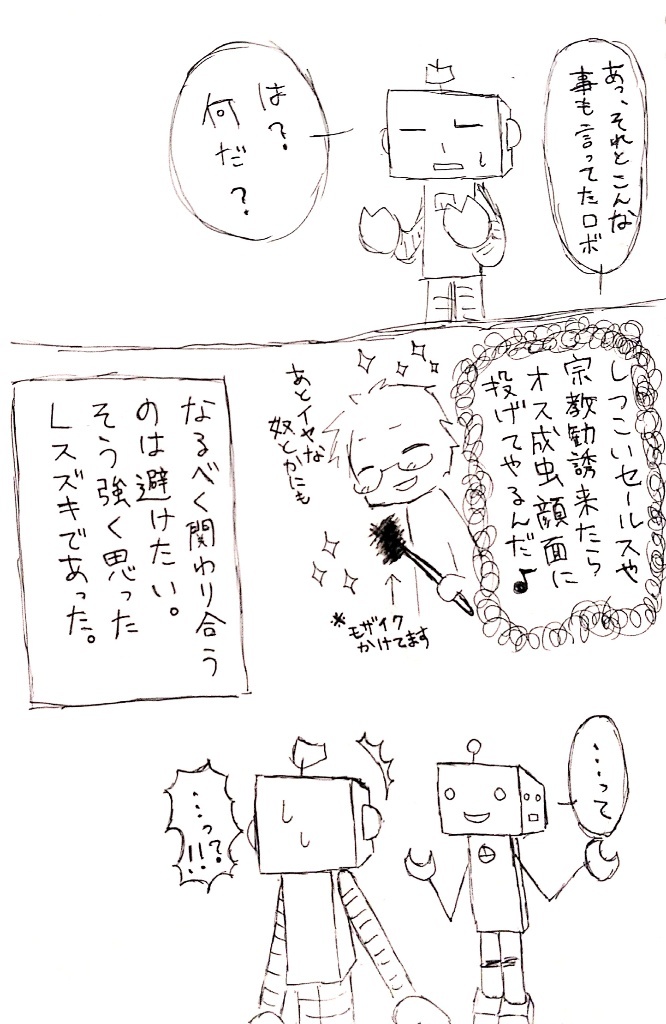 あっ、それとこんな
事も言ってたロボ
は？
何だ？
しつこいセールスや
宗教勧誘来たら
オス成虫顔面に
投げてやるんだ♪
あとイヤな
奴とかにも
＊モザイク
かけてます
なるべく関わり合う
のは避けたい。
そう強く思った
Lスズキであった。
…って
…っ？
!!